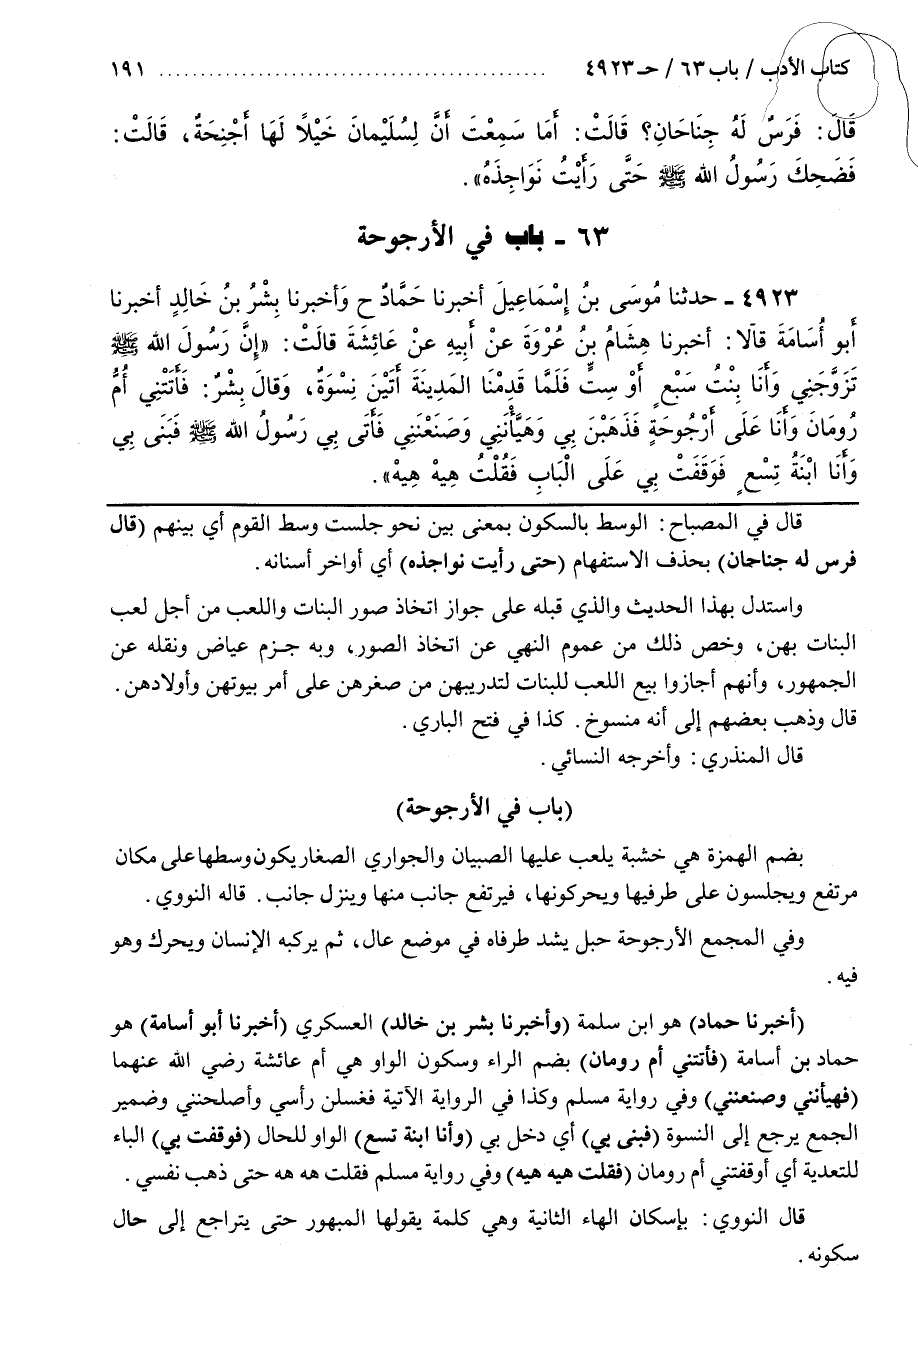 كتاب الأدب / باب ٦٣ / حـ ٤٩٢٣ ........................................ ١٩١
قَالَ: فَرَسٌ لَهُ جِنَاحَانِ؟ قَالَتْ: أَمَا سَمِعْتَ أَنَّ لِسُلَيْمانَ خَيْلًا لَهَا أَجْنِحَةٌ، قَالَتْ:
فَضَحِكَ رَسُولُ الله ﷺ حَتَّى رَأَيْتُ نَوَاجِذَهُ».
٦٣ - باب في الأرجوحة
٤٩٢٣ - حدثنا مُوسَى بنُ إسْمَاعِيلَ أخبرنا حَمَّادٌ ح وَأخبرنا بِشْرُ بنُ خَالِدٍ أخبرنا
أبو أُسَامَةَ قالَا: أخبرنا هِشَامُ بنُ عُرْوَةَ عنْ أبِيهِ عنْ عَائِشَةَ قالَتْ: «إنَّ رَسُولَ الله ﷺ
تَزَوَّجَنِي وَأَنَا بِنْتُ سَبْعٍ أَوْ سِتٍّ فَلَمَّا قَدِمْنَا المَدِينَةَ أَتَيْنَ نِسْوَةٌ، وَقالَ بِشْرٌ: فَأَتَتْنِي أُمُّ
رُومَانَ وَأَنَا عَلَى أُرْجُوحَةٍ فَذَهَبْنَ بِي وَهَيَّأْنَنِي وَصَنَعْنَنِي فَأَتَى بِي رَسُولُ الله ﷺ فَبَنَى بِي
وَأَنَا ابْنَةُ تِسْعٍ فَوَقَفَتْ بِي عَلَى الْبَابِ فَقُلْتُ هِيهْ هِيهْ».
قال في المصباح: الوسط بالسكون بمعنى بين نحو جلست وسط القوم أي بينهم (قال
فرس له جناحان) بحذف الاستفهام (حتى رأيت نواجذه) أي أواخر أسنانه.
واستدل بهذا الحديث والذي قبله على جواز اتخاذ صور البنات واللعب من أجل لعب
البنات بهن، وخص ذلك من عموم النهي عن اتخاذ الصور، وبه جزم عياض ونقله عن
الجمهور، وأنهم أجازوا بيع اللعب للبنات لتدريبهن من صغرهن على أمر بيوتهن وأولادهن.
قال وذهب بعضهم إلى أنه منسوخ. كذا في فتح الباري.
قال المنذري: وأخرجه النسائي.
(باب في الأرجوحة)
بضم الهمزة هي خشبة يلعب عليها الصبيان والجواري الصغار يكون وسطها على مكان
مرتفع ويجلسون على طرفيها ويحركونها، فيرتفع جانب منها وينزل جانب. قاله النووي.
وفي المجمع الأرجوحة حبل يشد طرفاه في موضع عال، ثم يركبه الإنسان ويحرك وهو
فيه.
(أخبرنا حماد) هو ابن سلمة (وأخبرنا بشر بن خالد) العسكري (أخبرنا أبو أسامة) هو
حماد بن أسامة (فأتتني أم رومان) بضم الراء وسكون الواو هي أم عائشة رضي الله عنهما
(فهيأنني وصنعنني) وفي رواية مسلم وكذا في الرواية الآتية فغسلن رأسي وأصلحنني وضمير
الجمع يرجع إلى النسوة (فبنى بي) أي دخل بي (وأنا ابنة تسع) الواو للحال (فوقفت بي) الباء
للتعدية أي أوقفتني أم رومان (فقلت هيه هيه) وفي رواية مسلم فقلت هه هه حتى ذهب نفسي.
قال النووي: بإسكان الهاء الثانية وهي كلمة يقولها المبهور حتى يتراجع إلى حال
سكونه.